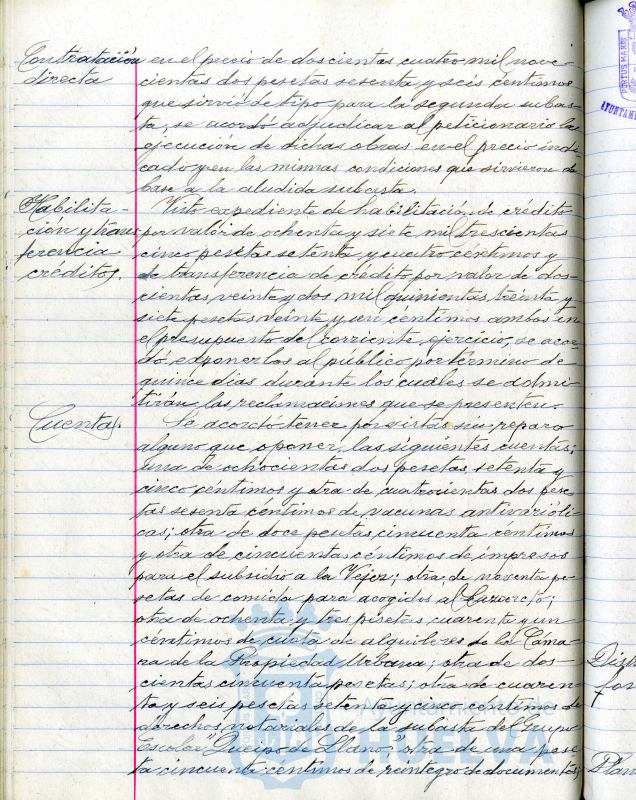 Contratación
directa
en el precio de doscientas cuatro mil nove-
cientas dos pesetas sesenta y seis centimos
que sirvió de tipo para la segunda subas-
ta, se acordó adjudicar al peticionario la
ejecución de dichas obras en el precio indi-
cado y en las mismas condiciones que sirvieron de
base a la aludida subasta.
Habilita-
ción y trans
ferencia
créditos.
Visto expediente de habilitación de crédito
por valor de ochenta y siete mil trescientas
cinco pesetas setenta y cuatro centimos y
de transferencia de crédito por valor de dos-
cientas veinte y dos mil quinientas treinta y
siete pesetas veinte y un centimos ambos en
el presupuesto del corriente ejercicio, se acor-
dó exponerlos al público por término de
quince dias durante los cuales se admi-
tirán las reclamaciones que se presenten.
Cuentas.
Se acordó tener por vistas sin reparo
alguno que oponer, las siguientes cuentas;
una de ochocientas dos pesetas setenta y
cinco céntimos y otra de cuatrocientas dos pese
tas sesenta céntimos de vacunas antivarióli-
cas; otra de doce pesetas cincuenta céntimos
y otra de cincuenta céntimos de impresos
para el subsidio a la Vejez; otra de noventa pe-
setas de comida para acogidos al Lazareto;
otra de ochenta y tres pesetas cuarenta y un
céntimos de cuota de alquileres de la Cáma-
ra de la Propiedad Urbana; otra de dos-
cientas cincuenta pesetas; otra de cuaren-
ta y seis pesetas setenta y cinco céntimos de
derechos notariales de la subasta del Grupo
Escolar "Queipo de Llano"; otra de una pese
ta cincuenta céntimos de reintegro de documentos;
HUELVA